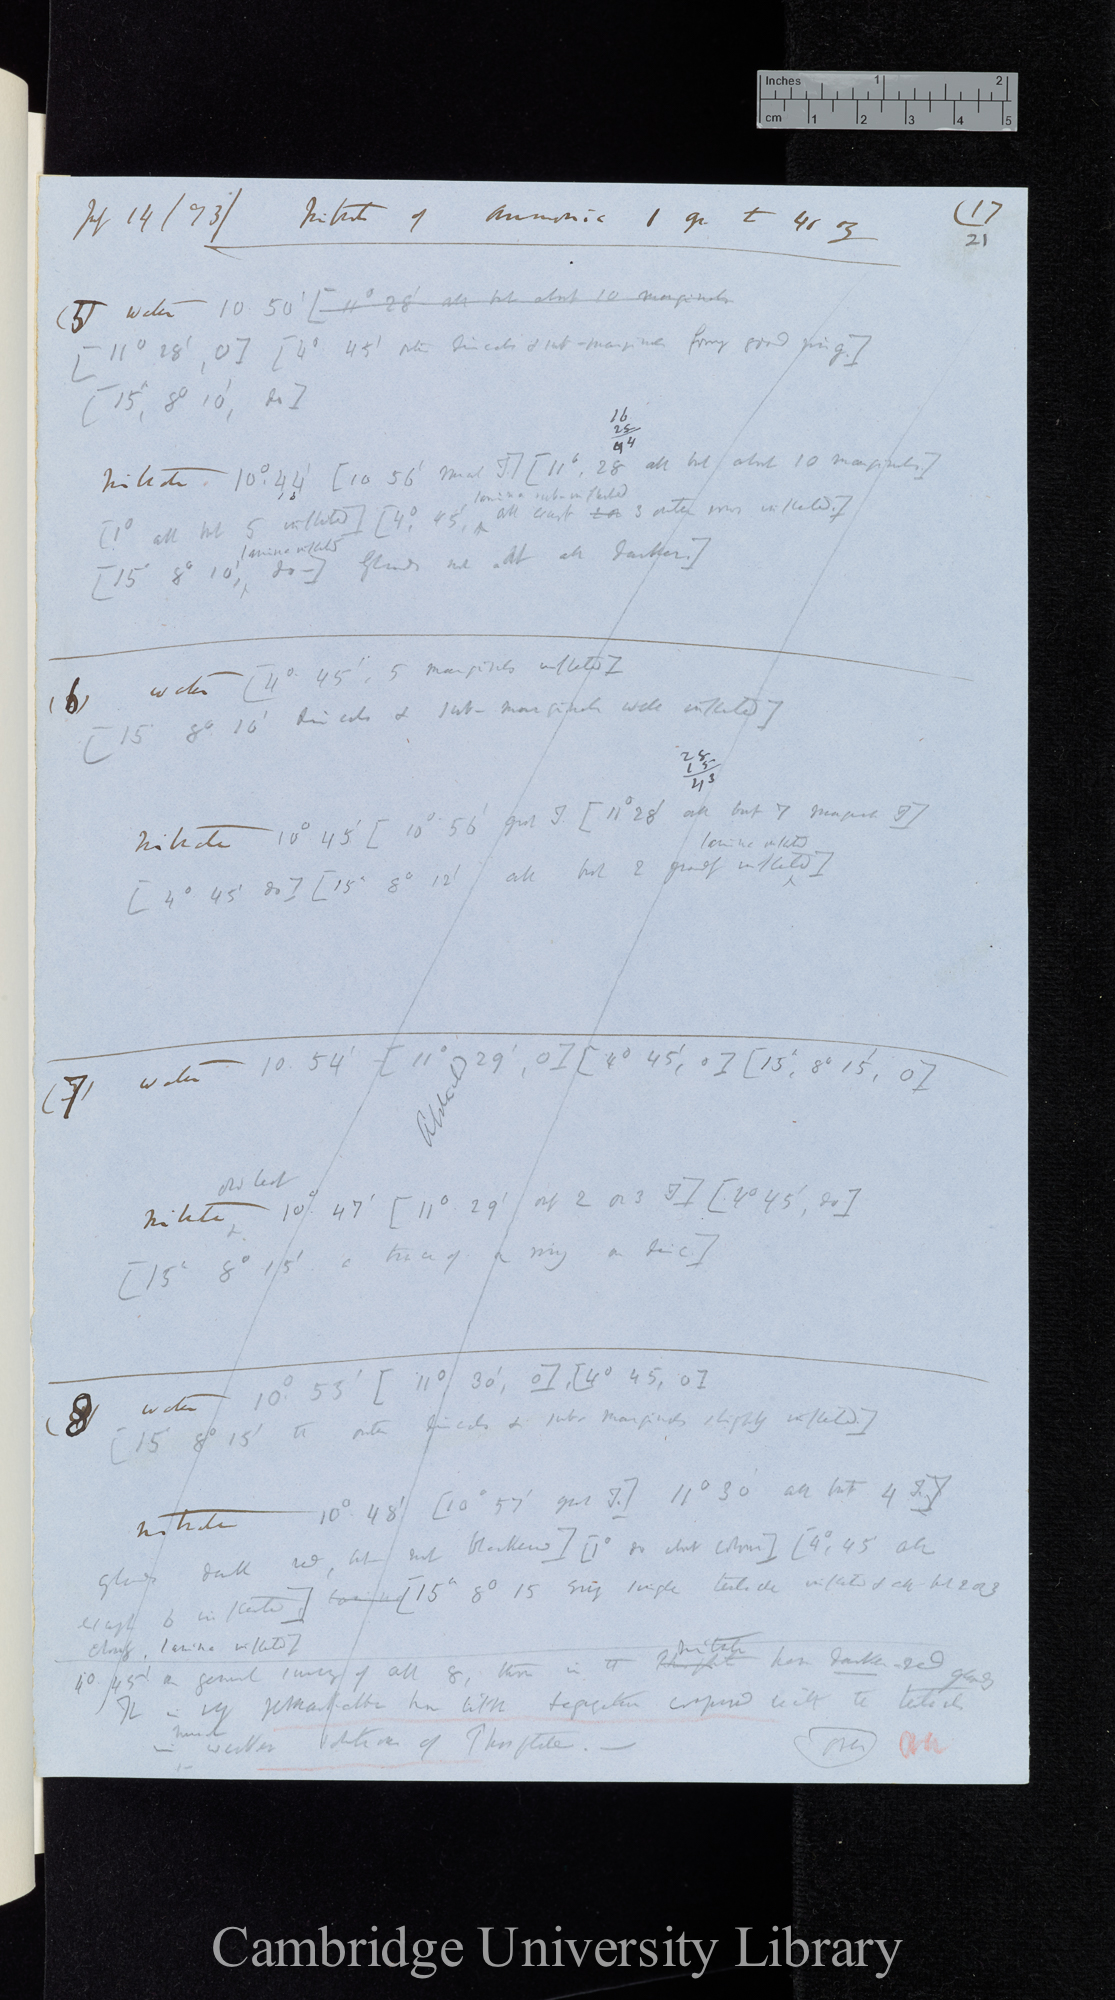 Inches 1 2
cm 1 2 3 4 5
14 /73/ Nitrate of Ammonia 1 gr to 40 oz (17
21
(5) water 10 50' [11° 28' all but about 10 marginals
[11° 28', 0] [4° 45' outer discals & sub-marginals good ring.]
[15, 8° 10', do]
16
28
44
Nitrate 10° 44' [10 56' small T.] [11°. 28 all but about 10 marginals.]
lamina sub-inflected
[1° all but 5 inflected] [4°, 45', all except 3 outer rows inflected.]
lamina inflected
[15 8° 10', do—] Glands not at all darker.]
(6) water [4° 45', 5 marginals inflected]
[15 8° 10' discals & sub-marginals well inflected]
28
15
43
Nitrate 10° 45' [10° 56' great T. [11° 28' all but 7 T]
lamina inflected
[4° 45' do] [15 8° 12' all but 2 inflected]
(7) water 10 54' [11° 29', 0] [4° 45', 0] [15, 8° 15', 0]
old leaf
Nitrate 10° 47' [11° 29' only 2 or 3 T] [4° 45', do]
[15 8° 15' a trace of a ring on disc.]
(8) water 10° 53' [11° 30', 0], [4° 45, 0]
[15 8° 15' the outer discals & sub-marginals slightly inflected.]
Nitrate 10° 48' [10° 57' great T.] 11° 30' all but 4 T.]
glands dark red, but not blackened] [1° do about colour] [4°, 45 all
except 6 inflected.] [15 8° 15 every single tentacle inflected & all but 2 or 3
closely, lamina inflected]
4° 45' on general survey of all 8, those in the nitrate have darker-red glands
It is very remarkable how little segregation compared with the tentacles
in much weaker solutions of Phosphate. —
over
Cambridge University Library